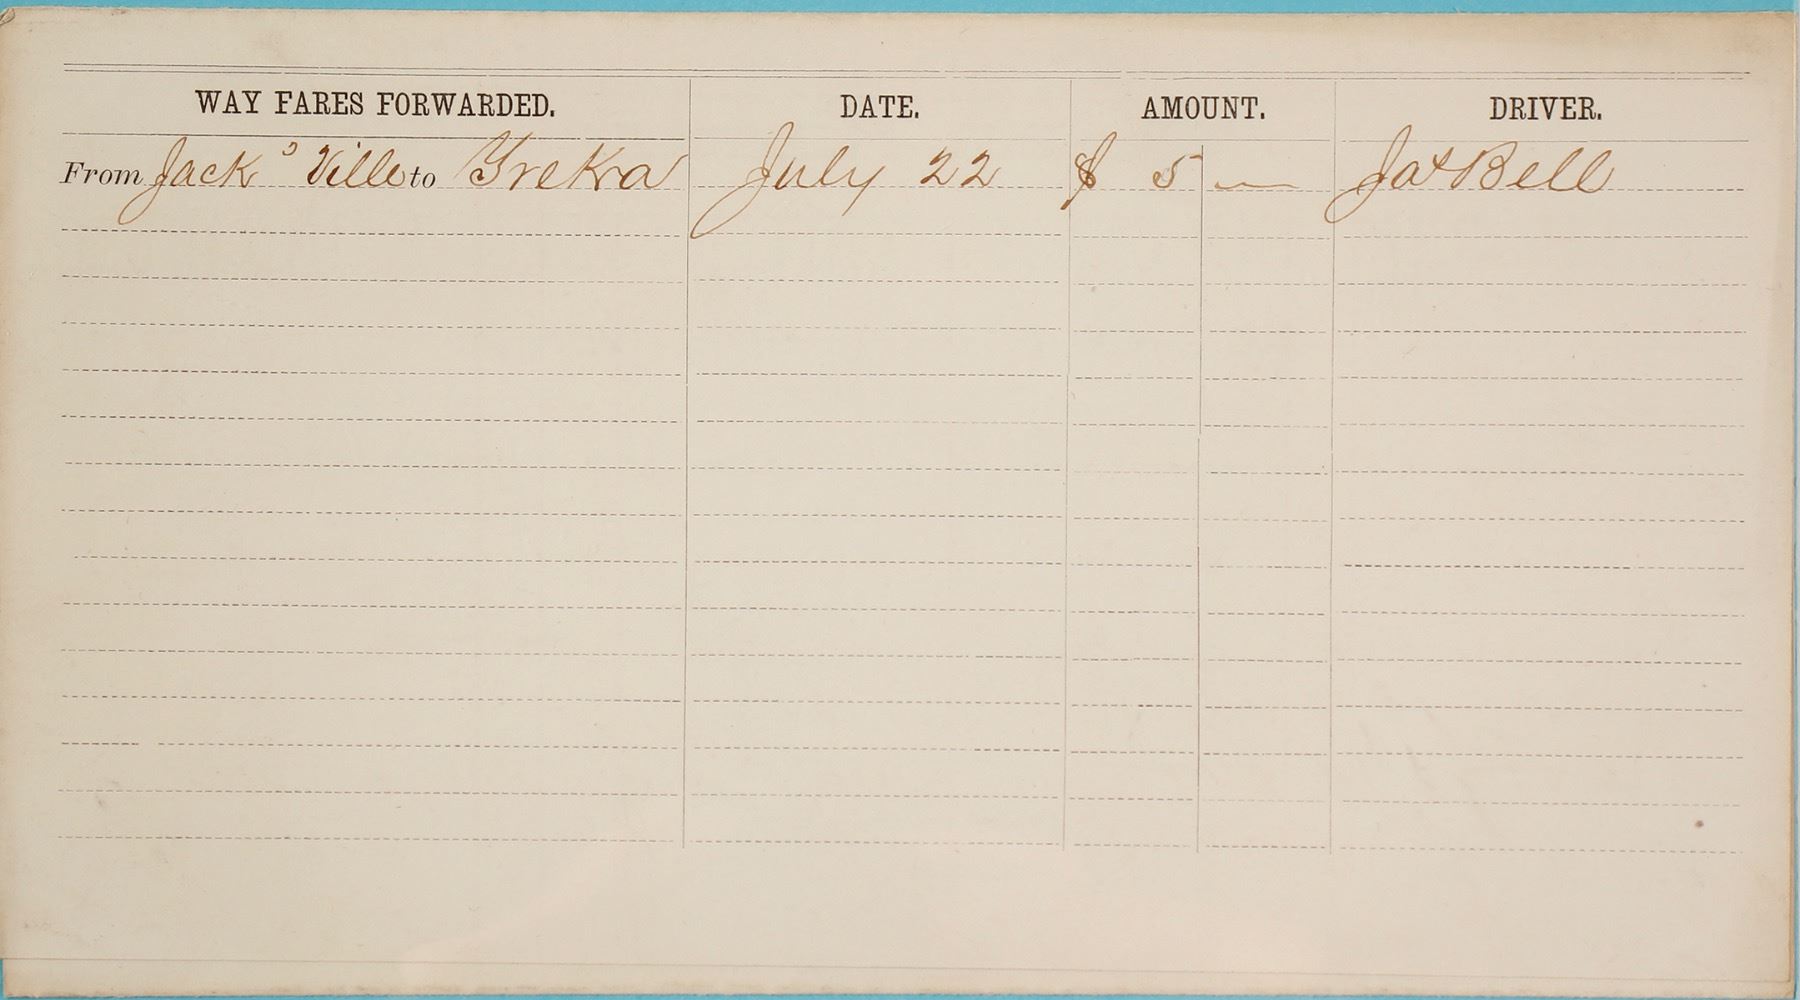 WAY FARES FORWARDED. DATE. AMOUNT. DRIVER.
From Jack's Ville to Yreka July 22 $ 5 — Jas Bell